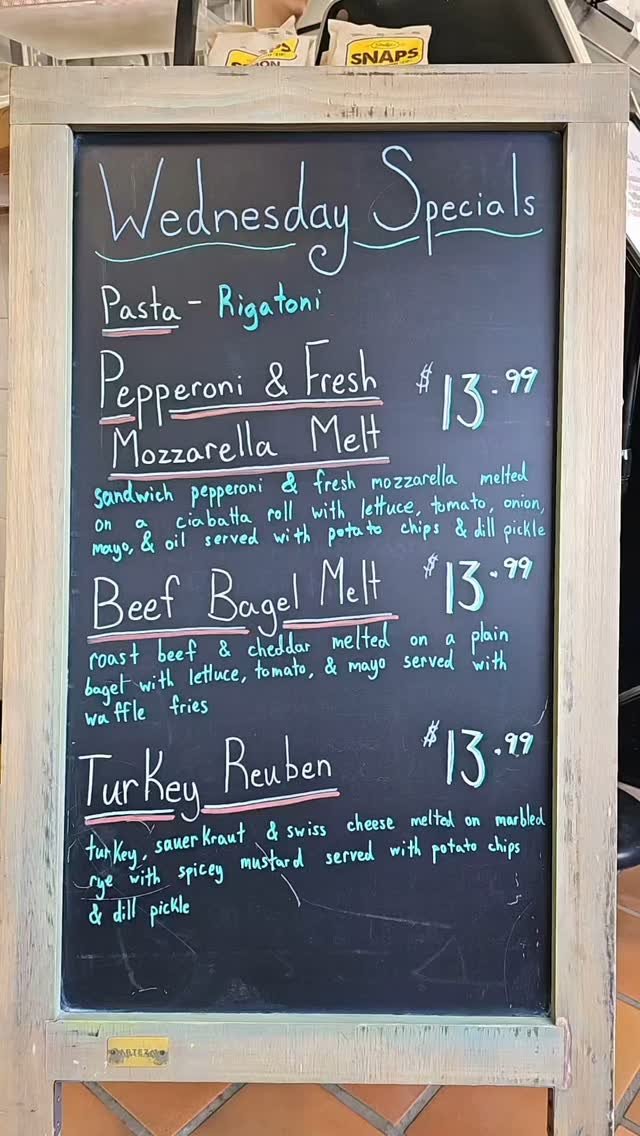 SNAPS
Wednesday Specials
Pasta - Rigatoni
Pepperoni & Fresh $13.99
Mozzarella Melt
sandwich pepperoni & fresh mozzarella melted
on a ciabatta roll with lettuce, tomato, onion,
mayo, & oil served with potato chips & dill pickle
Beef Bagel Melt $13.99
roast beef & cheddar melted on a plain
bagel with lettuce, tomato, & mayo served with
waffle fries
Turkey Reuben $13.99
turkey, sauerkraut & swiss cheese melted on marbled
rye with spicey mustard served with potato chips
& dill pickle
ARTEZA